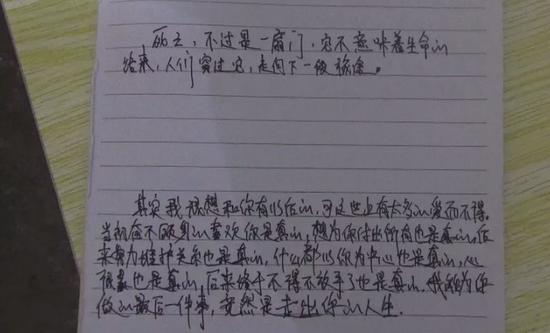 死亡，不过是一扇门，它不意味着生命的
结束，人们穿过它，走向下一段旅途。
其实我很想和你有以后的，可这世上有太多的爱而不得。
当初奋不顾身的喜欢你是真的，想为你付出所有也是真的，后
来努力维持关系也是真的，什么都以你为中心也是真的，心
很累也是真的，后来终于不得不放手了也是真的。我能为你
做的最后一件事，竟然是走出你的人生。